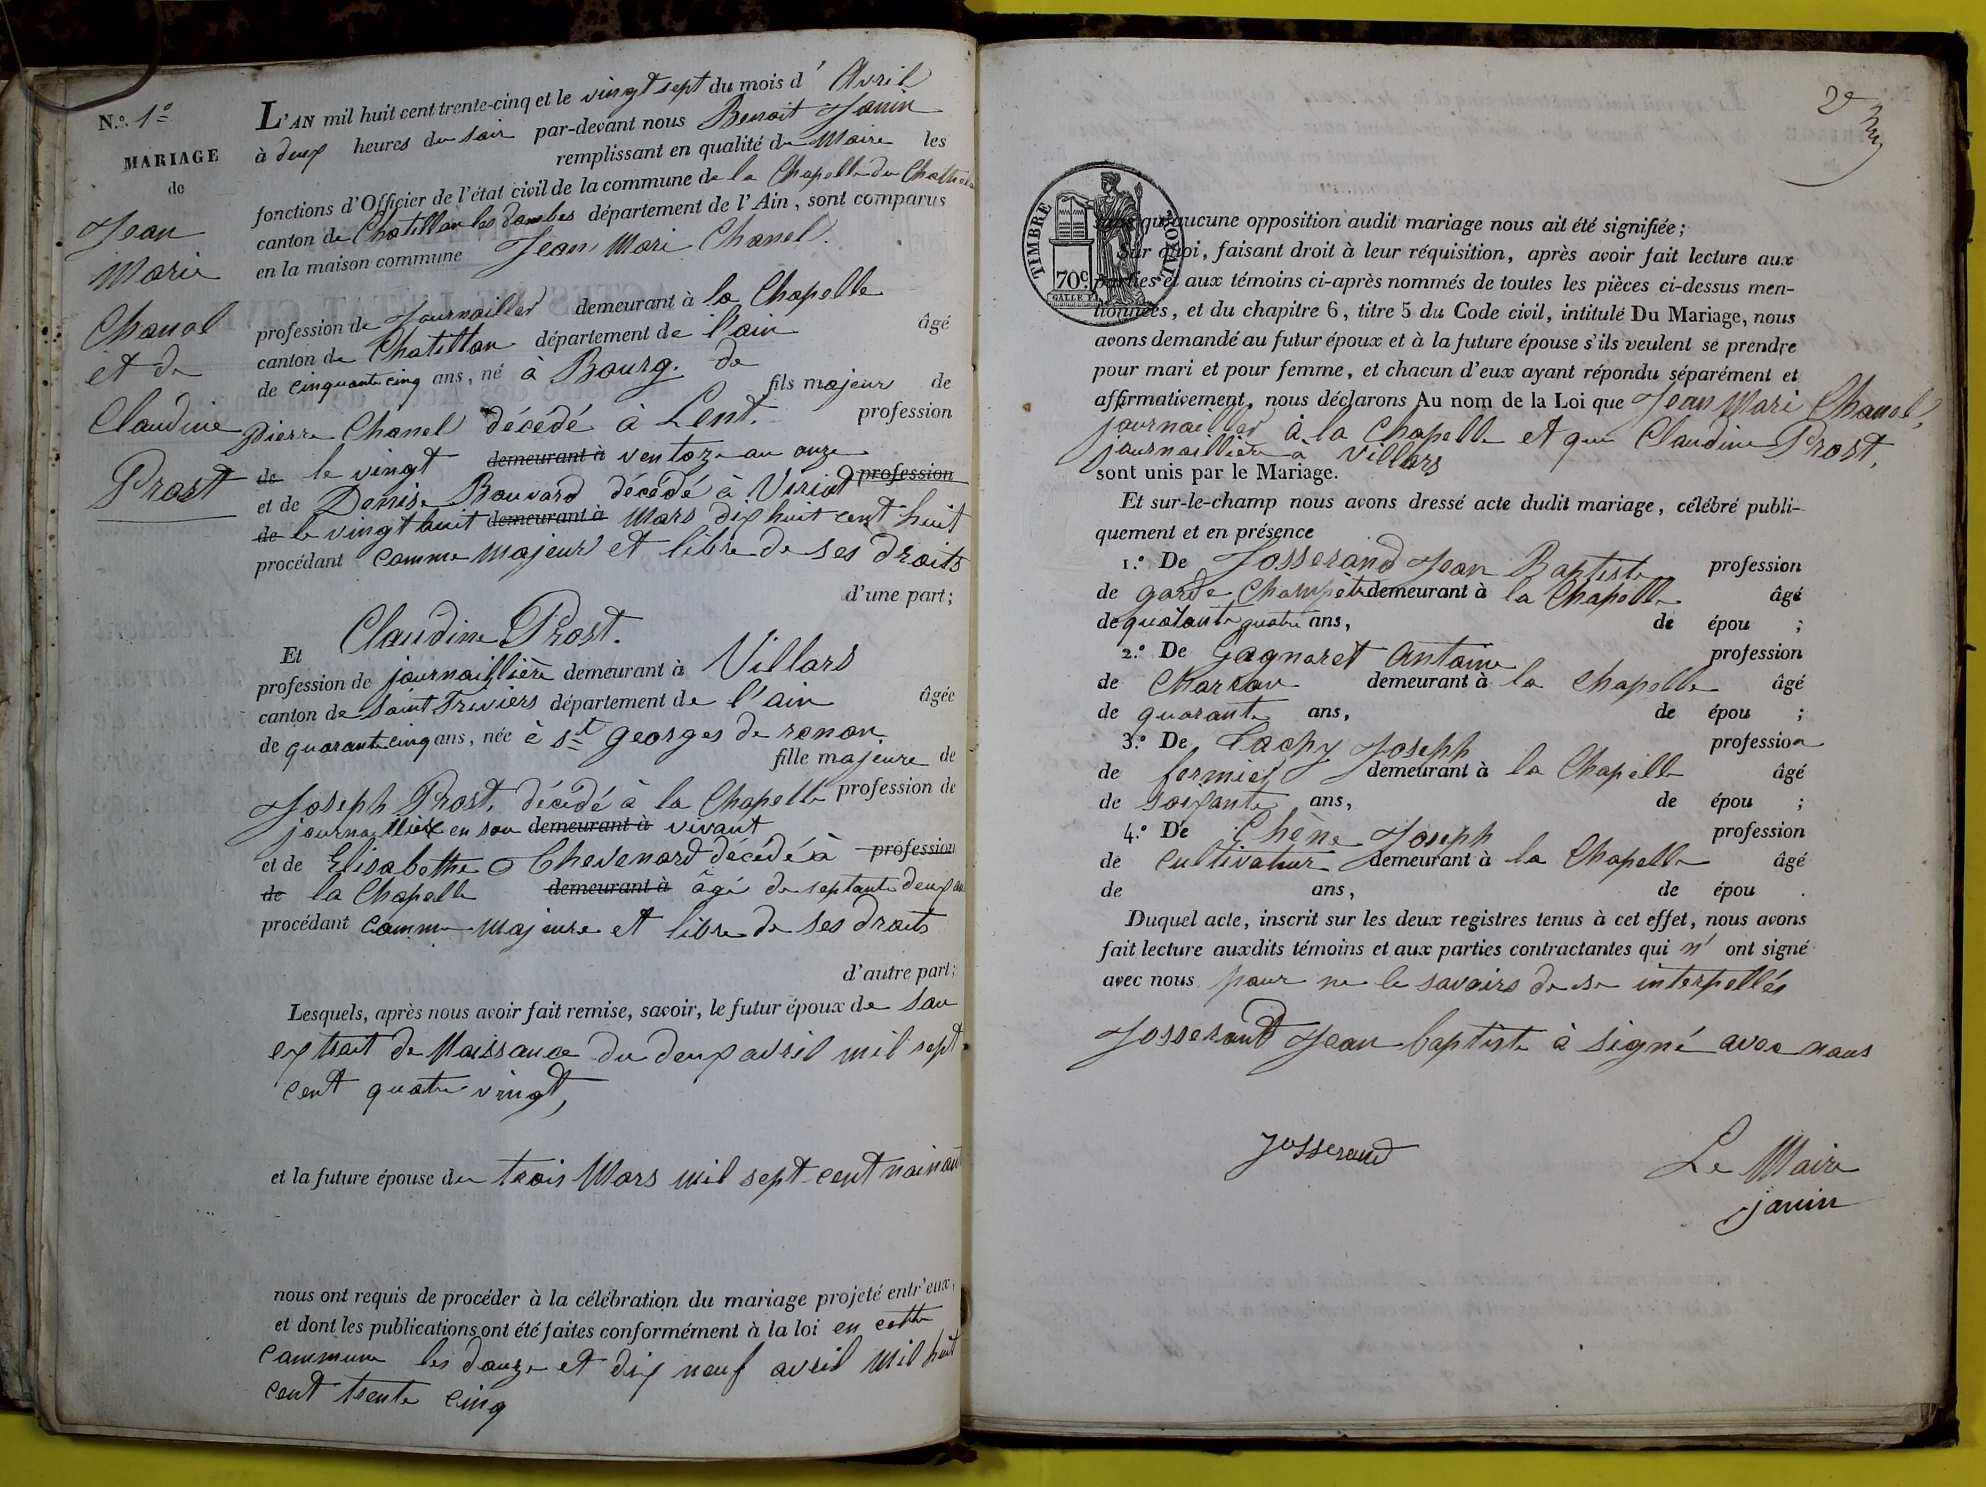 N.o 1o
MARIAGE
de
Jean
Marie
Chanel
et de
Claudine
Prost
L'AN mil huit cent trente-cinq et le vingt sept du mois d' Avril
à deux heures du soir par-devant nous Benoit Janin
remplissant en qualité de Maire les
fonctions d'Officier de l'état civil de la commune de la Chapelle du Chatelard
canton de Chatillon les dombes département de l'Ain, sont comparus
en la maison commune Jean Mari Chanel.
profession de Journailler demeurant à la Chapelle
canton de Chatillon département de l'ain âgé
de cinquante cinq ans, né à Bourg. de
fils majeur de
pierre Chanel décédé à Lent. profession
de le vingt demeurant à ventoze an onze
et de Denise Bouvard décédé à Viriat profession
de le vingt huit demeurant à Mars dix huit cent huit
procédant comme majeur et libre de ses droits
d'une part;
Et Claudine Prost.
profession de journaillière demeurant à Villars
canton de Saint Triviers département de l'ain âgée
de quarante cinq ans, née à st georges de renon
fille majeure de
Joseph Prost, décédé à la Chapelle profession de
journaillier en son demeurant à vivant
et de Elisabethe Chevenard décédé à profession
de la Chapelle demeurant à âgé de septante deux an
procédant comme majeure et libre de ses droits
d'autre part;
Lesquels, après nous avoir fait remise, savoir, le futur époux de son
extrait de Naissance du deux avril mil sept
cent quatre vingt,
et la future épouse du trois Mars mil sept cent nonante
nous ont requis de procéder à la célébration du mariage projeté entr'eux,
et dont les publications ont été faites conformément à la loi en cette
commune les douze et dix neuf avril mil huit
cent trente cinq
TIMBRE ROYAL
70c.
sans qu'aucune opposition audit mariage nous ait été signifiée;
Sur quoi, faisant droit à leur réquisition, après avoir fait lecture aux
parties et aux témoins ci-après nommés de toutes les pièces ci-dessus men-
tionnées, et du chapitre 6, titre 5 du Code civil, intitulé Du Mariage, nous
avons demandé au futur époux et à la future épouse s'ils veulent se prendre
pour mari et pour femme, et chacun d'eux ayant répondu séparément et
affirmativement, nous déclarons Au nom de la Loi que Jean Mari Chanel,
journailler à la Chapelle et que Claudine Prost,
journaillière a Villars
sont unis par le Mariage.
Et sur-le-champ nous avons dressé acte dudit mariage, célébré publi-
quement et en présence
1.o De Josserand Jean Baptiste profession
de garde Champêtre demeurant à la Chapelle âgé
de quarante quatre ans, de épou ;
2.o De Gagnaret Antoine profession
de Charron demeurant à la Chapelle âgé
de quarante ans, de épou ;
3.o De Joseph profession
de fermier demeurant à la Chapelle âgé
de soixante ans, de épou ;
4.o De Chêne Joseph profession
de Cultivateur demeurant à la Chapelle âgé
de ans, de épou .
Duquel acte, inscrit sur les deux registres tenus à cet effet, nous avons
fait lecture auxdits témoins et aux parties contractantes qui n' ont signé
avec nous pour ne le savoirs de se interpellés
Josserand Jean baptiste à signé avec nous
Josserand
Le Maire
janin